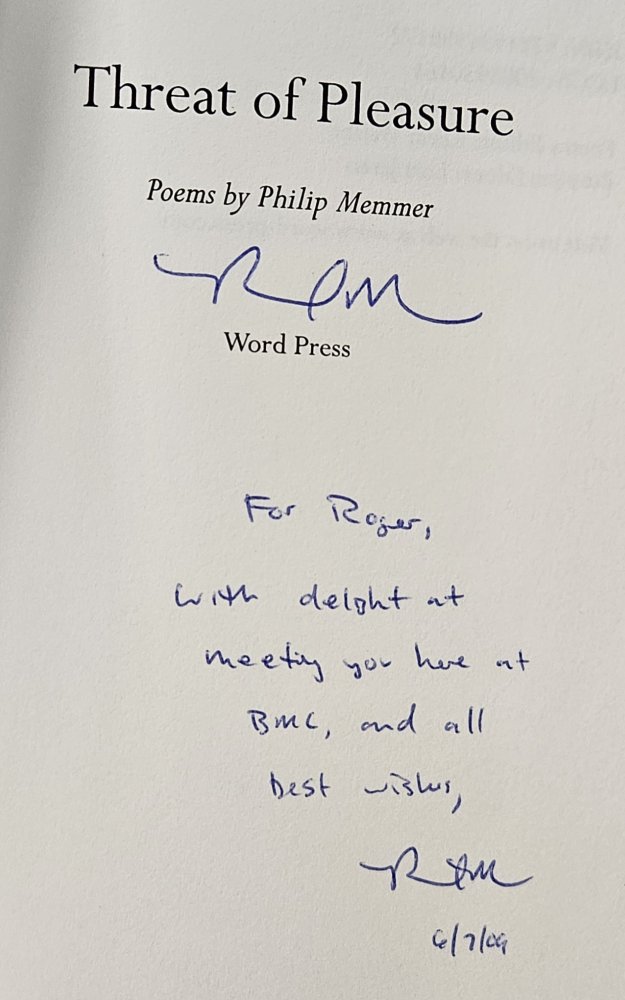 Threat of Pleasure
Poems by Philip Memmer
Word Press
For Roger,
with delight at
meeting you here at
BMC, and all
best wishes,
6/7/09